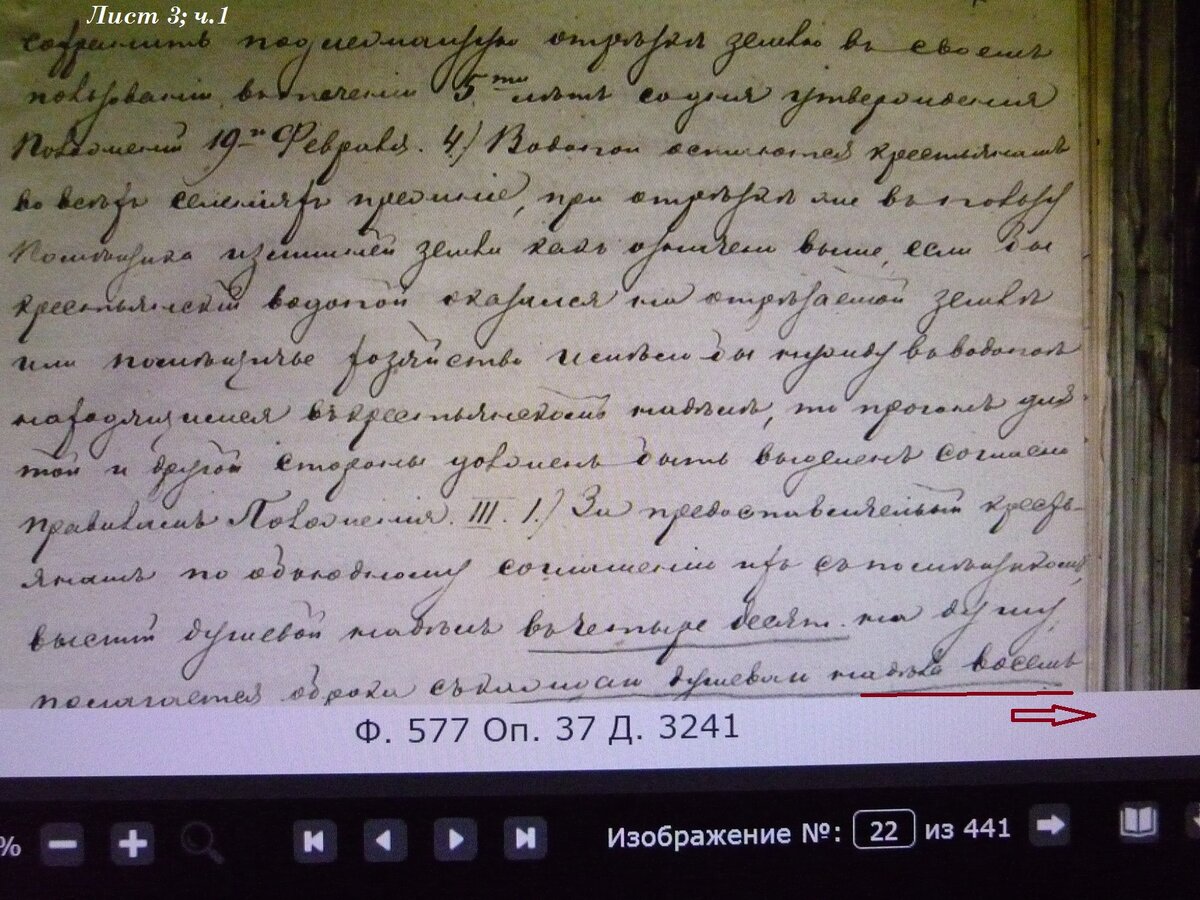 Лист 3; ч.1
сохранить подлежащую отрѣзкѣ землю въ своемъ
пользованіи, въ теченіи 5ти лѣтъ со дня утвержденія
Положеній 19го Февраля. 4.) Водопои остаются крестьянамъ
во всѣхъ селеніяхъ прежніе, при отрѣзкѣ же въ пользу
Помѣщика излишней земли какъ означено выше, если бы
крестьянскій водопой оказался на отрѣзаемой землѣ
или помѣщичье хозяйство имѣло бы нужду въ водопоѣ
находящимся въ крестьянскомъ надѣлѣ, то прогонъ для
той и другой стороны долженъ быть выделенъ согласно
правиламъ Положенія. III. 1.) За предоставленный кресть-
янамъ по обоюдному соглашенію ихъ съ помѣщикомъ,
высшій душевой надѣлъ въ четыре десят. на душу,
полагается оброка съ каждаго душеваго надѣла восемь
Ф. 577 Оп. 37 Д. 3241
% Изображение №: 22 из 441